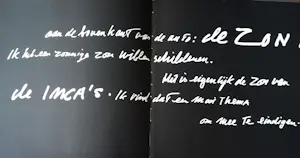 aan de bovenkant van de auto: de ZON
Ik heb een zonnige zon willen schilderen.
Het is eigenlijk de zon van
de INCA'S. Ik vind dat een mooi thema
om mee te eindigen.